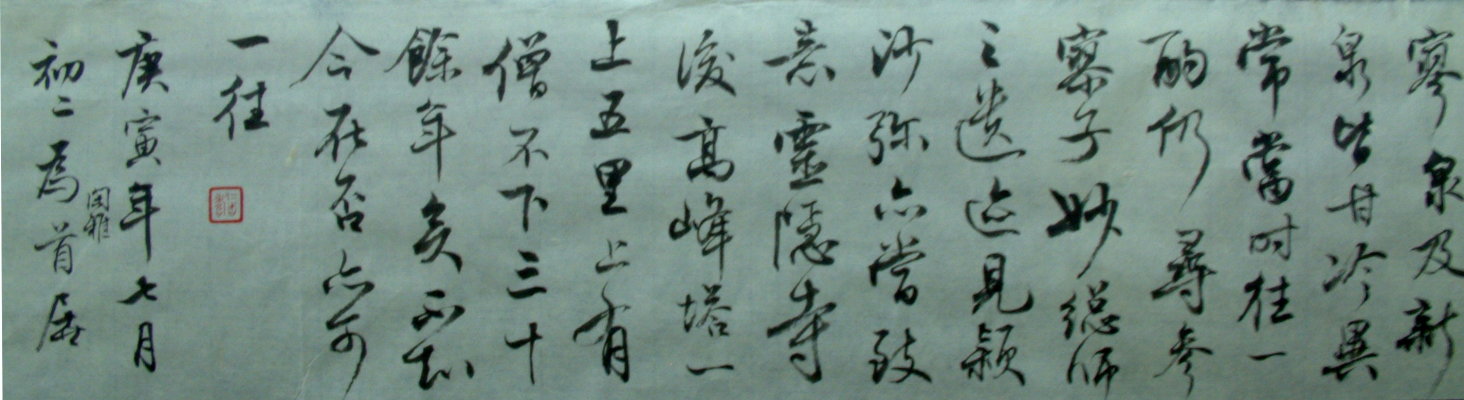 寥泉及新
泉皆甘冷異
常當时往一
酌仍尋參
寥子妙總師
之遺迹見穎
沙弥亦當致
意靈隱寺
後高峰塔一
上五里上有
僧不下三十
餘年矣不知
今在否亦可
一往
庚寅年七月
初二為首居